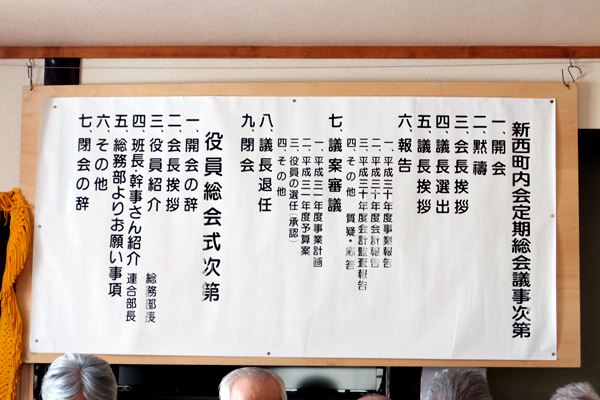 新西町内会定期総会議事次第
一、開会
二、黙禱
三、会長挨拶
四、議長選出
五、議長挨拶
六、報告
一、平成三十年度事業報告
二、平成三十年度会計報告
三、平成三十年度会計監査報告
四、その他 質疑・応答
七、議案審議
一、平成三一年度事業計画
二、平成三一年度予算案
三、役員の選任（承認）
四、その他
八、議長退任
九、閉会
役員総会式次第
一、開会の辞
二、会長挨拶
三、役員紹介 総務部長
四、班長・幹事さん紹介 連合部長
五、総務部よりお願い事項
六、その他
七、閉会の辞